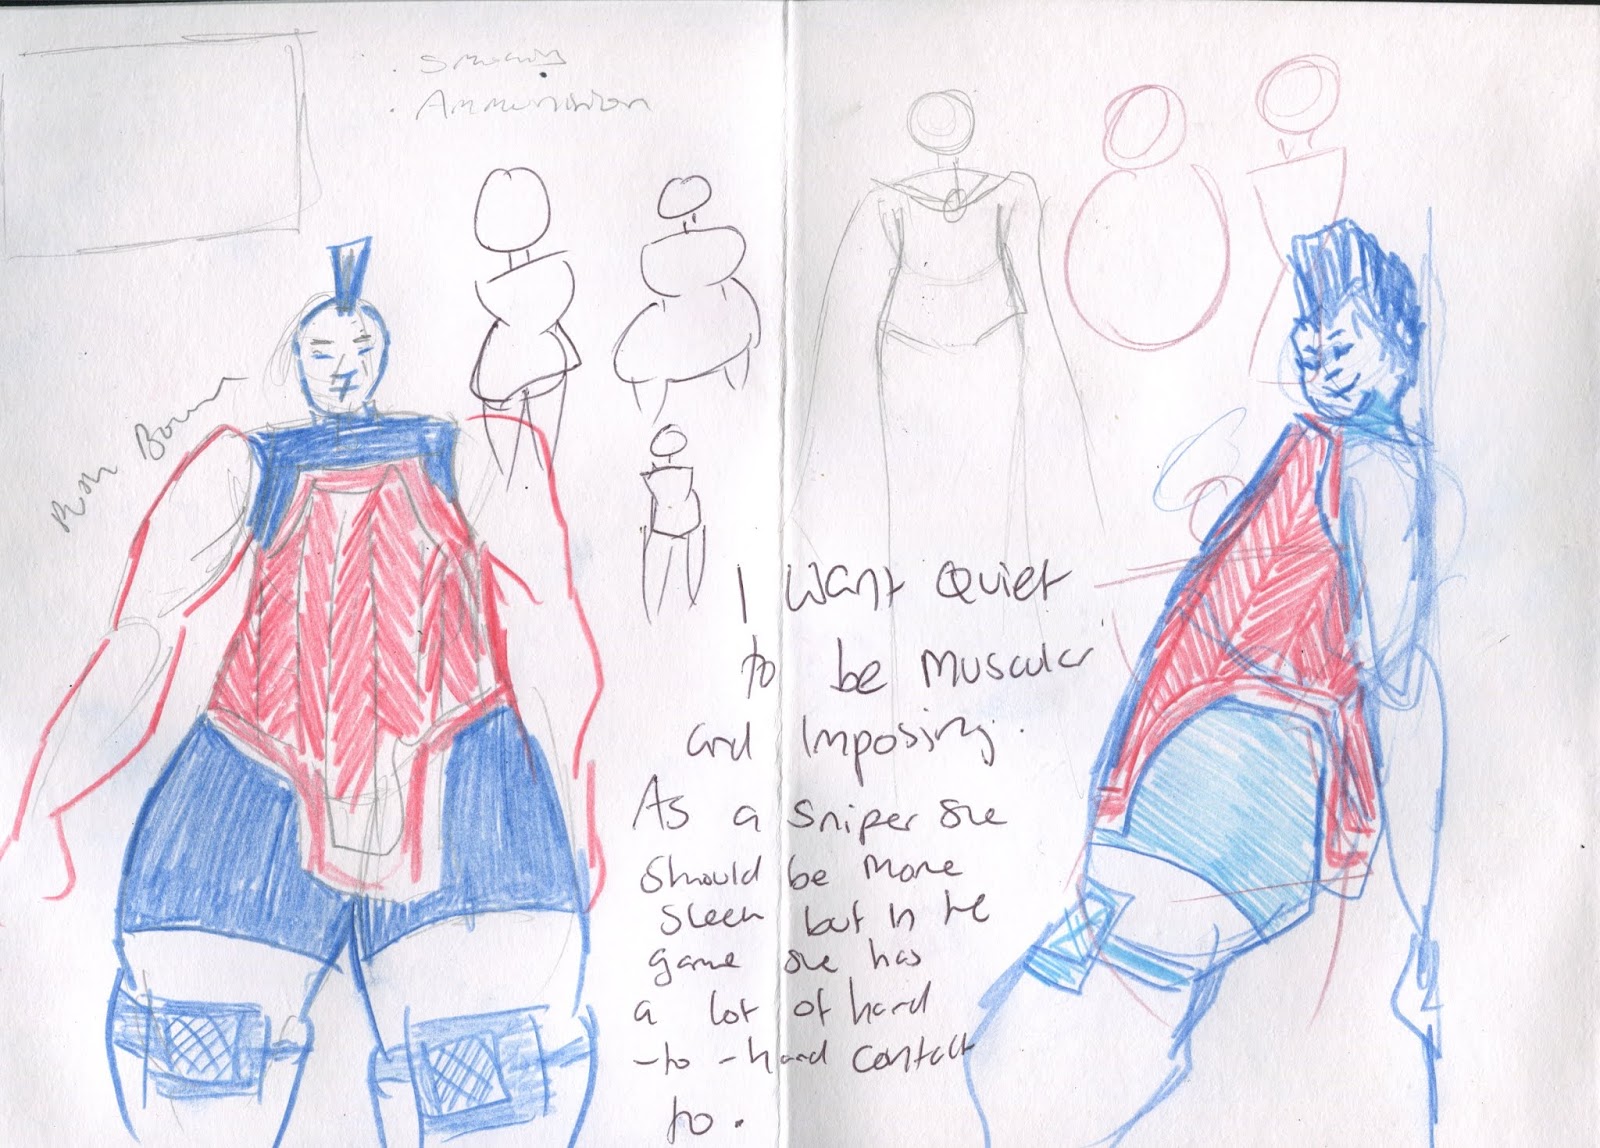 Ammunition
I Want Quiet
to be Muscular
and Imposing.
As a Sniper she
should be more
sleek but in the
game she has
a lot of hand
-to-hand contact
to.